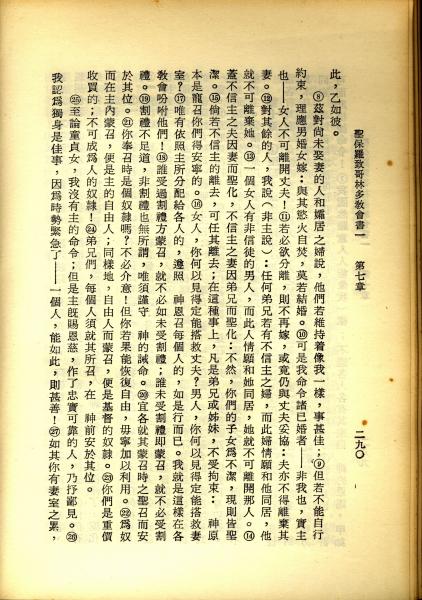 聖保羅致哥林多敎會書一　第七章　二九〇
此，乙如彼。
⑧茲對尚未娶妻的人和孀居之婦說，他們若維持着像我一樣，事甚佳；⑨但若不能自行
約束，理應男婚女嫁：與其慾火自焚，莫若結婚。⑩可是我命令諸已婚者——非我也，實主
也——女人不可離開丈夫！⑪若必欲分離，則不再嫁，或竟仍與丈夫妥協：夫亦不得離棄其
妻。⑫對其餘的人，我說（非主說）：任何弟兄若有不信主之婦，而此婦情願和他同居，他
就不可離棄她。⑬一個女人有非信徒的男人，而此人情願和她同居，她就不可離開那人。⑭
蓋不信主之夫因妻而聖化，不信主之妻因弟兄而聖化：不然，你們的子女爲不潔，現則皆聖
潔。⑮倘若不信主的離去，可任其離去；在這種事上，凡是弟兄或姊妹，不受拘束：　神原
本是寵召你們得安寧的。⑯女人，你何以見得定能搭救丈夫？男人，你何以見得定能搭救妻
室？⑰唯有依照主所分配給各人的，遵照　神恩召每個人的，如是行而已。我就是這樣在各
敎會吩咐他們！⑱誰受過割禮方蒙召，就不必如未受割禮；誰未受割禮卽蒙召，就不必受割
禮。⑲割禮不足道，非割禮也無所謂，唯須謹守　神的誡命。⑳宜各就其蒙召時之聖召而安
於其位。㉑你奉召時是個奴隸嗎？不必介意！但你若果能恢復自由，毋寧加以利用。㉒爲奴
而在主內蒙召，便是主的自由人；同樣地，自由人而蒙召，便是基督的奴隸。㉓你們是重價
收買的；不可成爲人的奴隸！㉔弟兄們，每個人須就其所召，在　神前安於其位。
㉕至論童貞女，我沒有主的命令；但是主旣賜恩慈，作了忠實可靠的人，乃抒鄙見。㉖
我認爲獨身是佳事，因爲時勢緊急了——一個人，能如此，則甚善！㉗如其你有妻室之累，